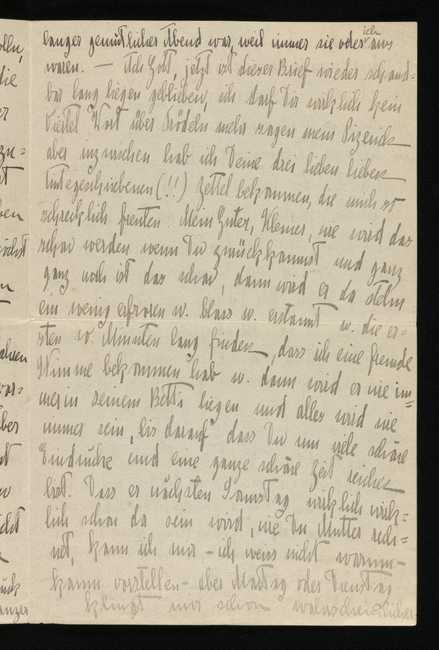 langes gemütliches Abend war, weil immer sie oder ich aus
waren. — Ach Gott, jetzt ist dieser Brief wieder schand=
bar lang liegen geblieben, ich darf Dir wirklich kein
Viertel Wort über Trödeln mehr sagen mein
aber inzwischen hab ich Deine drei lieben lieben
gutgeschriebenen (!!) Zettel bekommen, die mich so
schrecklich freuten. Mein Guter, Kleiner, wie wird das
schön werden wenn Du zurückkommst und ganz
ganz noch ist das schön, dann wird er da stehn
ein wenig erfroren u. blass u. erstaunt u. die er=
sten 10 Minuten lang finden, dass ich eine fremde
Stimme bekommen hab u. dann wird er wie im=
mer in seinem Bett liegen und alles wird wie
immer sein, bis darauf dass Du um viele schöne
Eindrücke und eine ganze schöne Zeit reicher
bist. Dass es nächsten Samstag wirklich wirk=
lich schon da sein wird, wie Du Mutter rech=
net, kann ich mir – ich weiss nicht warum –
kaum vorstellen – aber Montag oder Dienstag
klingt mir schon wahrscheinlicher